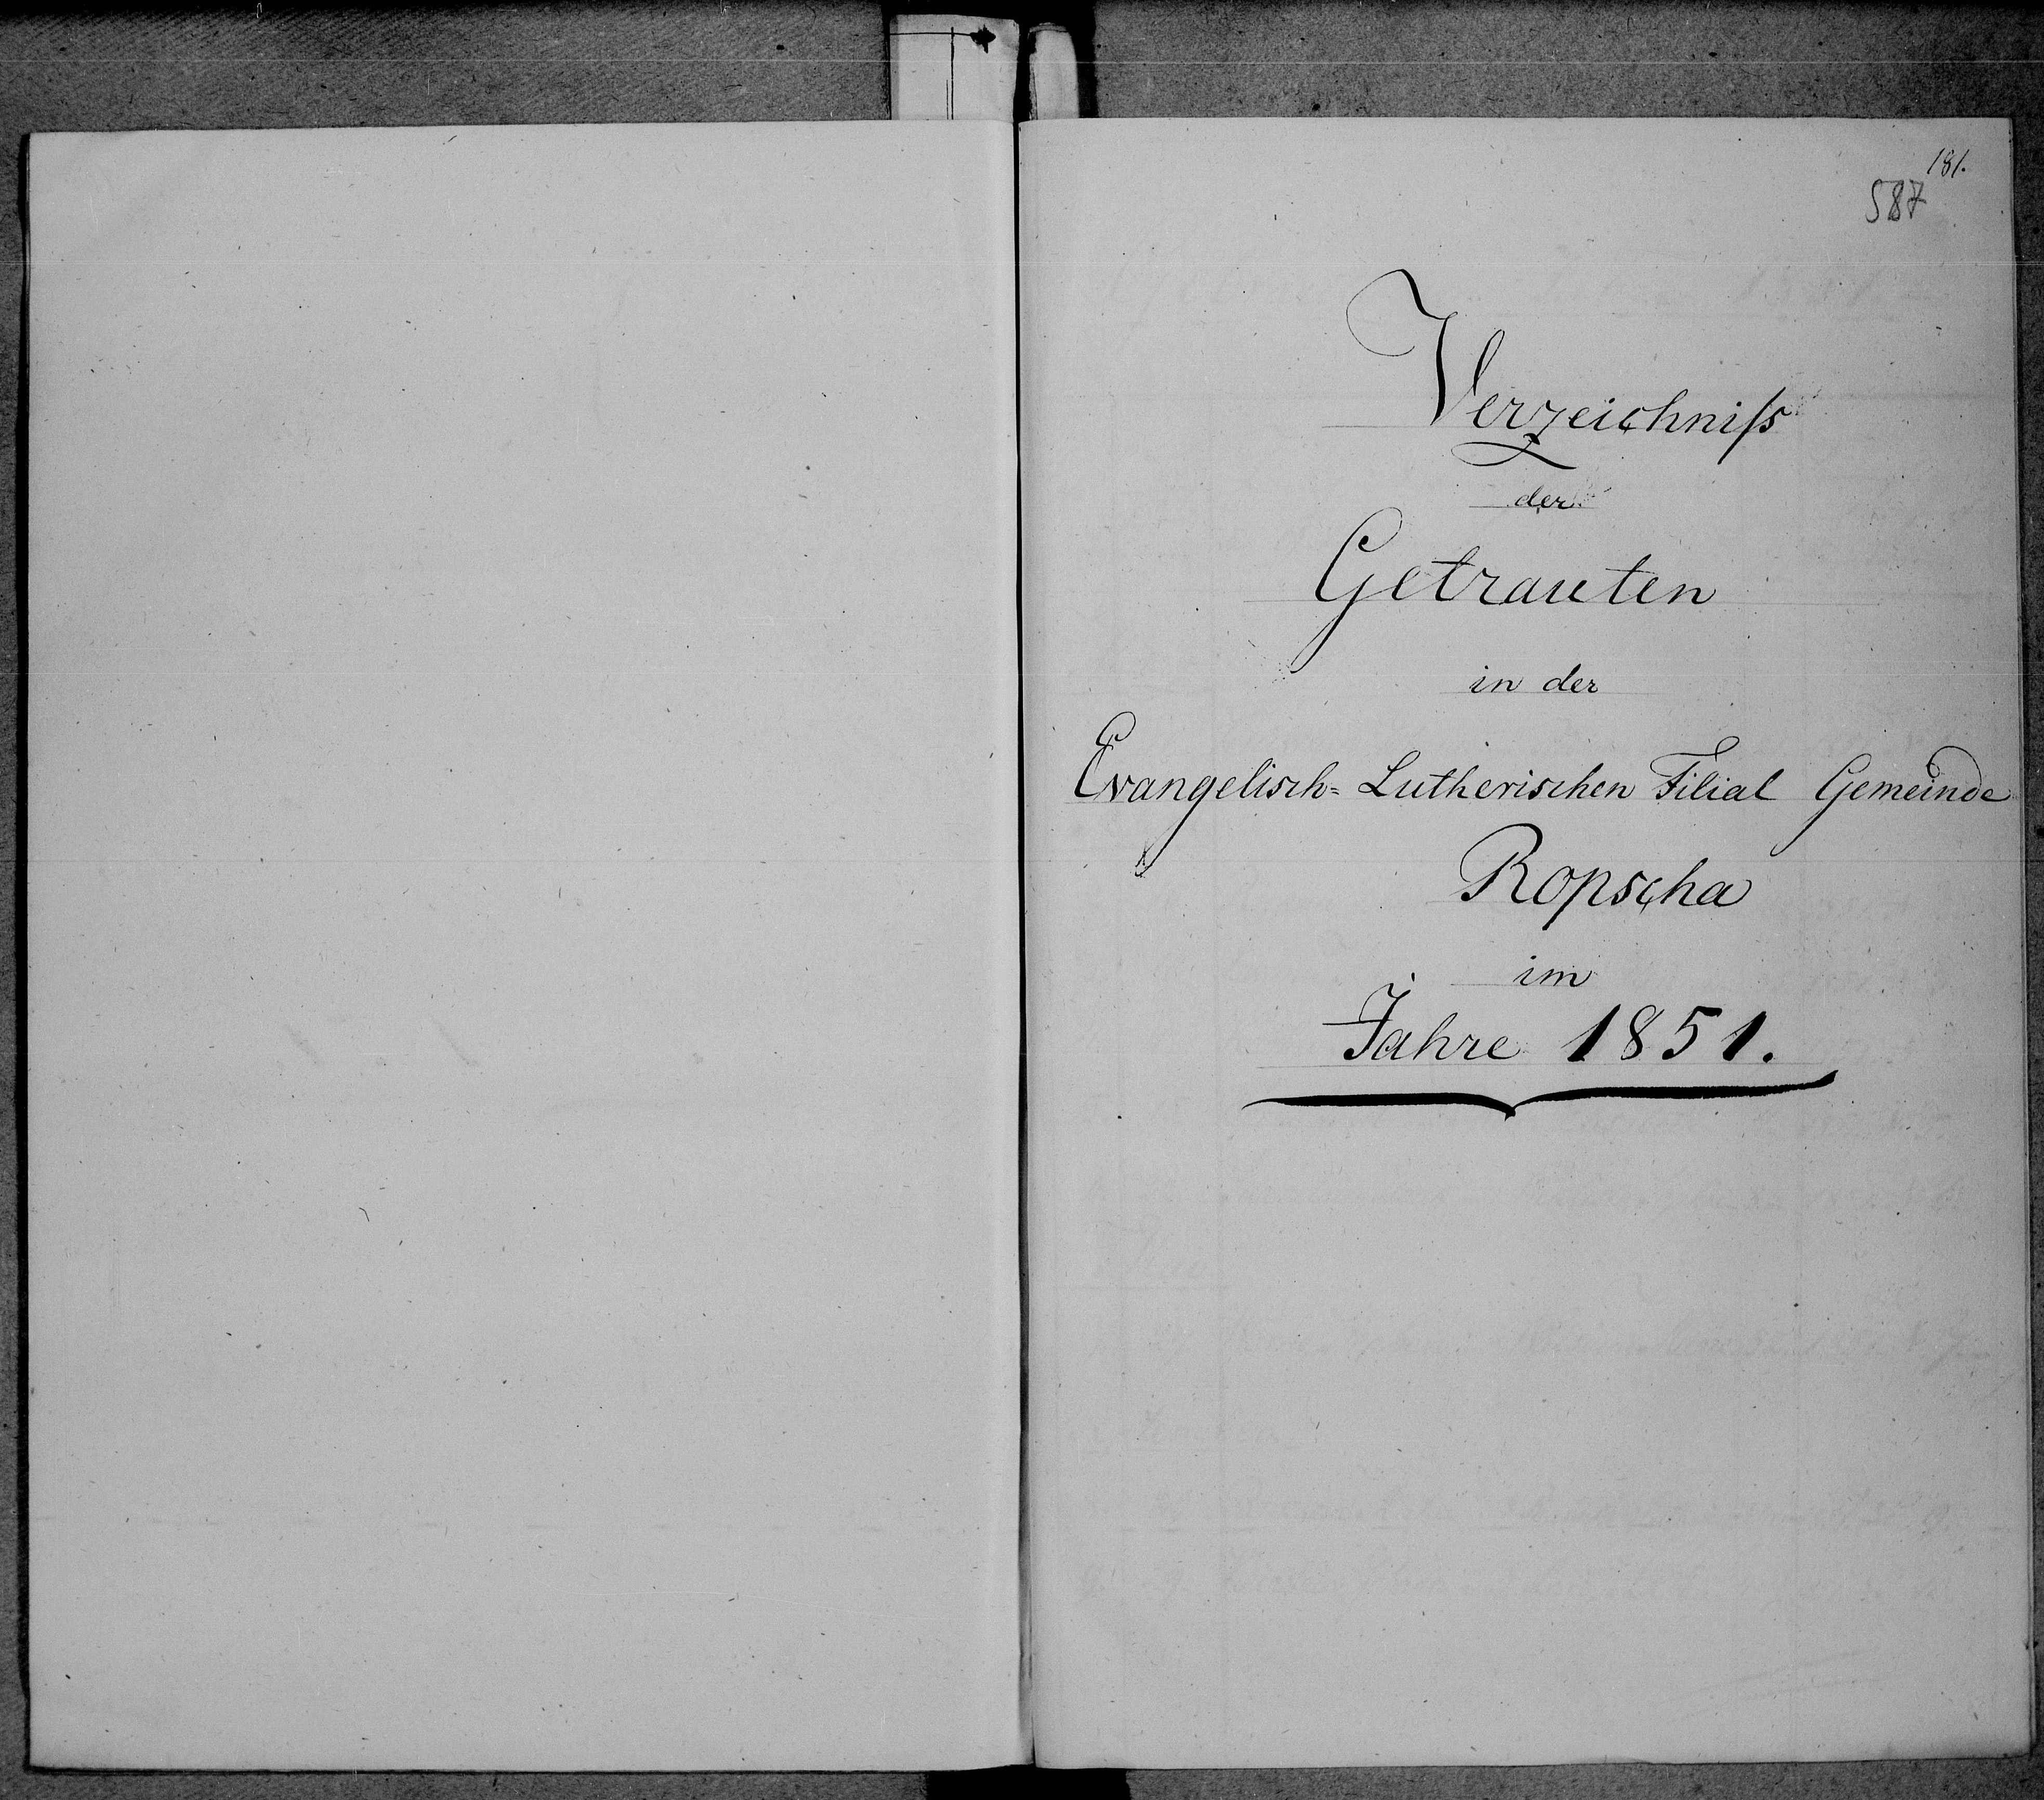 181.
587
Verzeichniſs
der
Getrauten
in der
Evangelisch= Lutherischen Filial Gemeinde
Ropscha
im
Jahre 1851.